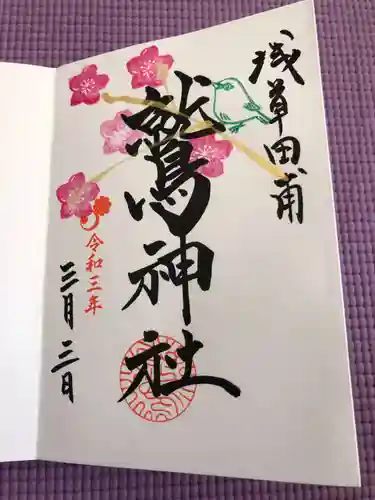 浅草田甫
鷲神社
令和三年
三月二日